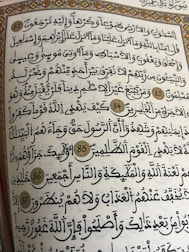 السَّمَٰوَٰتِ وَالْأَرْضِ طَوْعًا وَكَرْهًا وَإِلَيْهِ تُرْجَعُونَ
قُلْ ءَامَنَّا بِاللَّهِ وَمَا أُنزِلَ عَلَيْنَا وَمَا أُنزِلَ عَلَىٰ إِبْرَٰهِيمَ وَإِسْمَٰعِيلَ
وَإِسْحَٰقَ وَيَعْقُوبَ وَالْأَسْبَاطِ وَمَا أُوتِيَ مُوسَىٰ وَعِيسَىٰ
مِن رَّبِّهِمْ لَا نُفَرِّقُ بَيْنَ أَحَدٍ مِّنْهُمْ وَنَحْنُ لَهُ
وَمَن يَبْتَغِ غَيْرَ الْإِسْلَٰمِ دِينًا فَلَن يُقْبَلَ مِنْهُ وَهُوَ
الْأَخِرَةِ مِنَ الْخَٰسِرِينَ 84 كَيْفَ يَهْدِي اللَّهُ قَوْمًا كَفَرُوا
إِيمَٰنِهِمْ وَشَهِدُوا أَنَّ الرَّسُولَ حَقٌّ وَجَاءَهُمُ الْبَيِّنَٰتُ
لَا يَهْدِي الْقَوْمَ الظَّٰلِمِينَ 85 أُوْلَٰئِكَ جَزَاؤُهُمْ أَنَّ
لَعْنَةَ اللَّهِ وَالْمَلَٰئِكَةِ وَالنَّاسِ أَجْمَعِينَ 86 خَٰلِدِينَ
يُخَفَّفُ عَنْهُمُ الْعَذَابُ وَلَا هُمْ يُنظَرُونَ 87
مِن بَعْدِ ذَٰلِكَ وَأَصْلَحُوا فَإِنَّ اللَّهَ غَفُورٌ رَّحِيمٌ